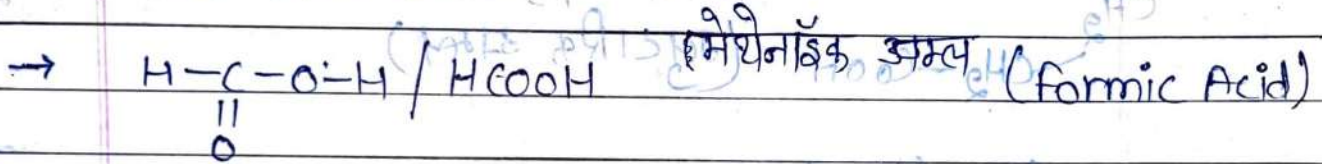 → H-C-O-H / HCOOH मेथेनॉइक अम्ल (formic Acid)
||
O